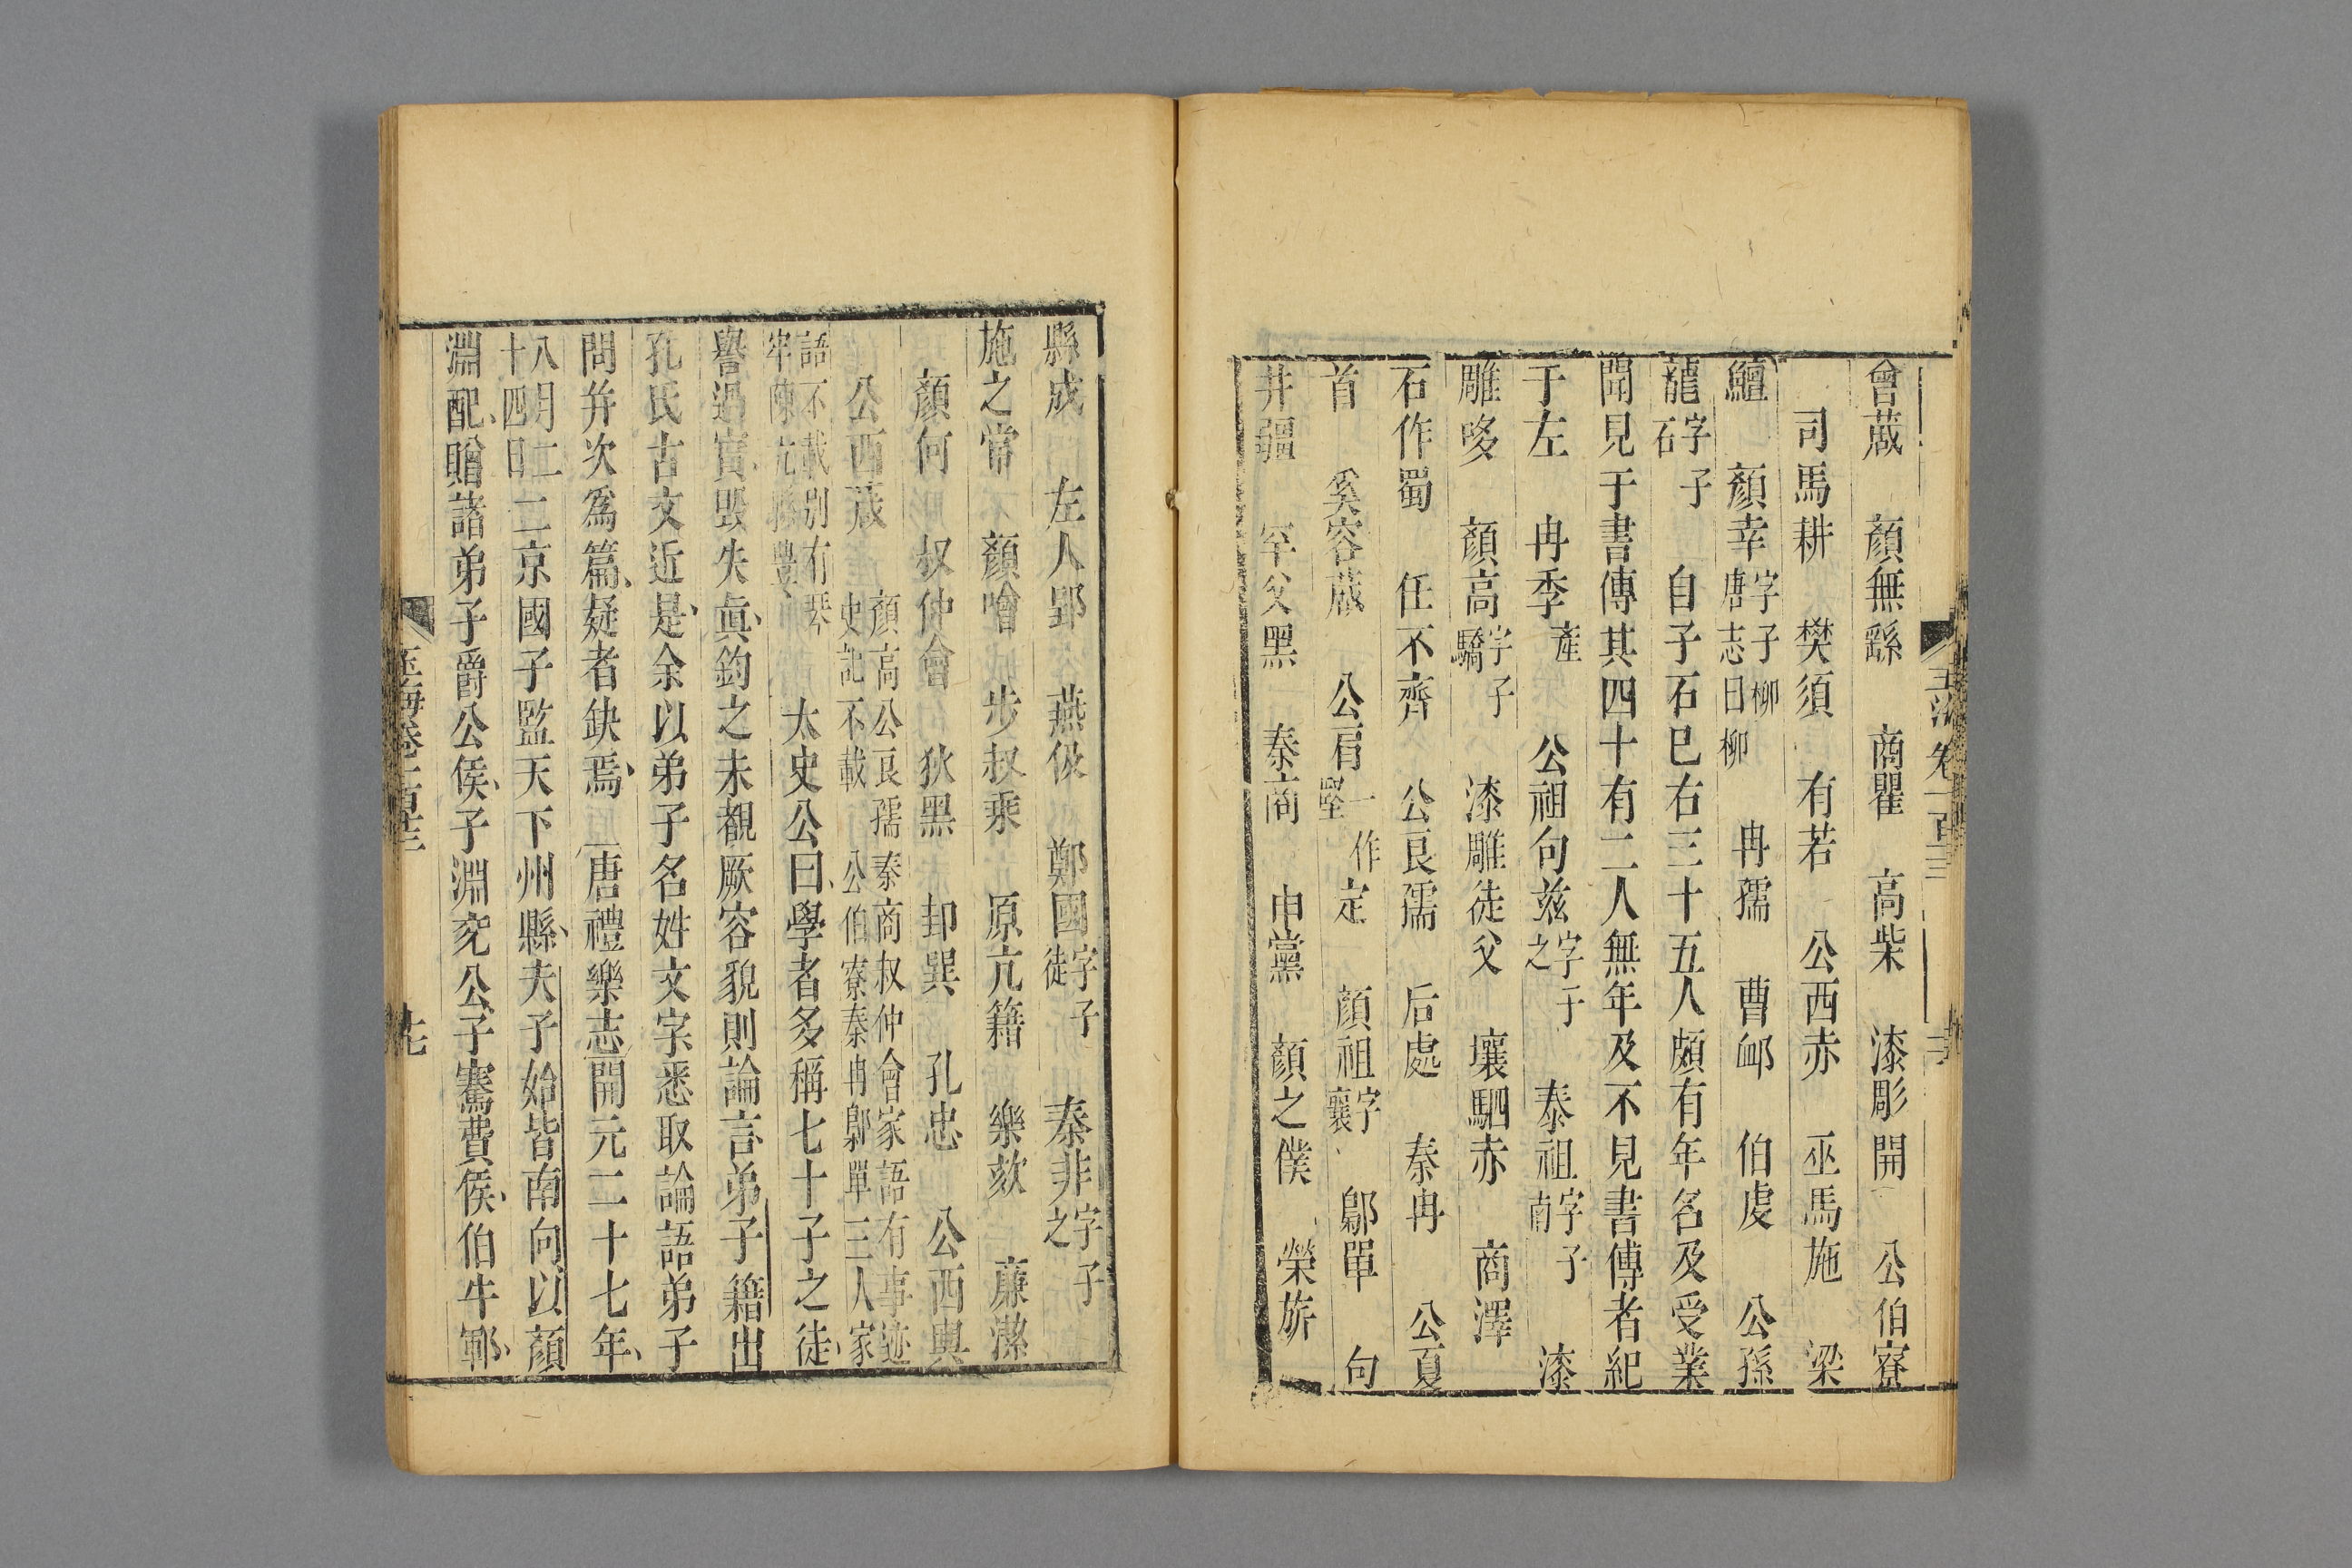 曾蒧　顏無繇　商瞿　高柴　漆彫開　公伯寮
司馬耕　樊須　有若　公西赤　巫馬施　梁
鱣　顏幸字子柳唐志曰柳　冉孺　曹䘏　伯虔　公孫
龍字子石　自子石已右三十五人頗有年名及受業
聞見于書傳其四十有二人無年及不見書傳者紀
于左　冉季產　公祖句兹字子之　秦祖字子南　漆
雕哆　顏高字子驕　漆雕徒父　壤駟赤　商澤
石作蜀　任不齊　公良孺　后處　秦冉　公夏
首　奚容蒧　公肩一作堅定　顏祖字襄　鄡單　句
井疆　罕父黑　秦商　申黨　顏之僕　榮旂
縣成　左人郢　燕伋　鄭國字子徒　秦非字子之
施之常　顏噲　步叔乘　原亢籍　樂欬　廉潔
顏何　叔仲會　狄黑　邽巽　孔忠　公西輿
公西蒧　顏高公良孺秦商叔仲會家語有事迹史記不載公伯寮秦冉鄡單三人家
語不載別有琴牢陳亢縣亶　太史公曰學者多稱七十子之徒
譽過實毀失眞鈞之未覩厥容貌則論言弟子籍出
孔氏古文近是余以弟子名姓文字悉取論語弟子
問幷次爲篇疑者缺焉　唐禮樂志開元二十七年
八月二十四日二京國子監天下州縣夫子始皆南向以顏
淵配贈諸弟子爵公侯子淵兖公子騫費侯伯牛鄆
玉海卷一百十三
十七